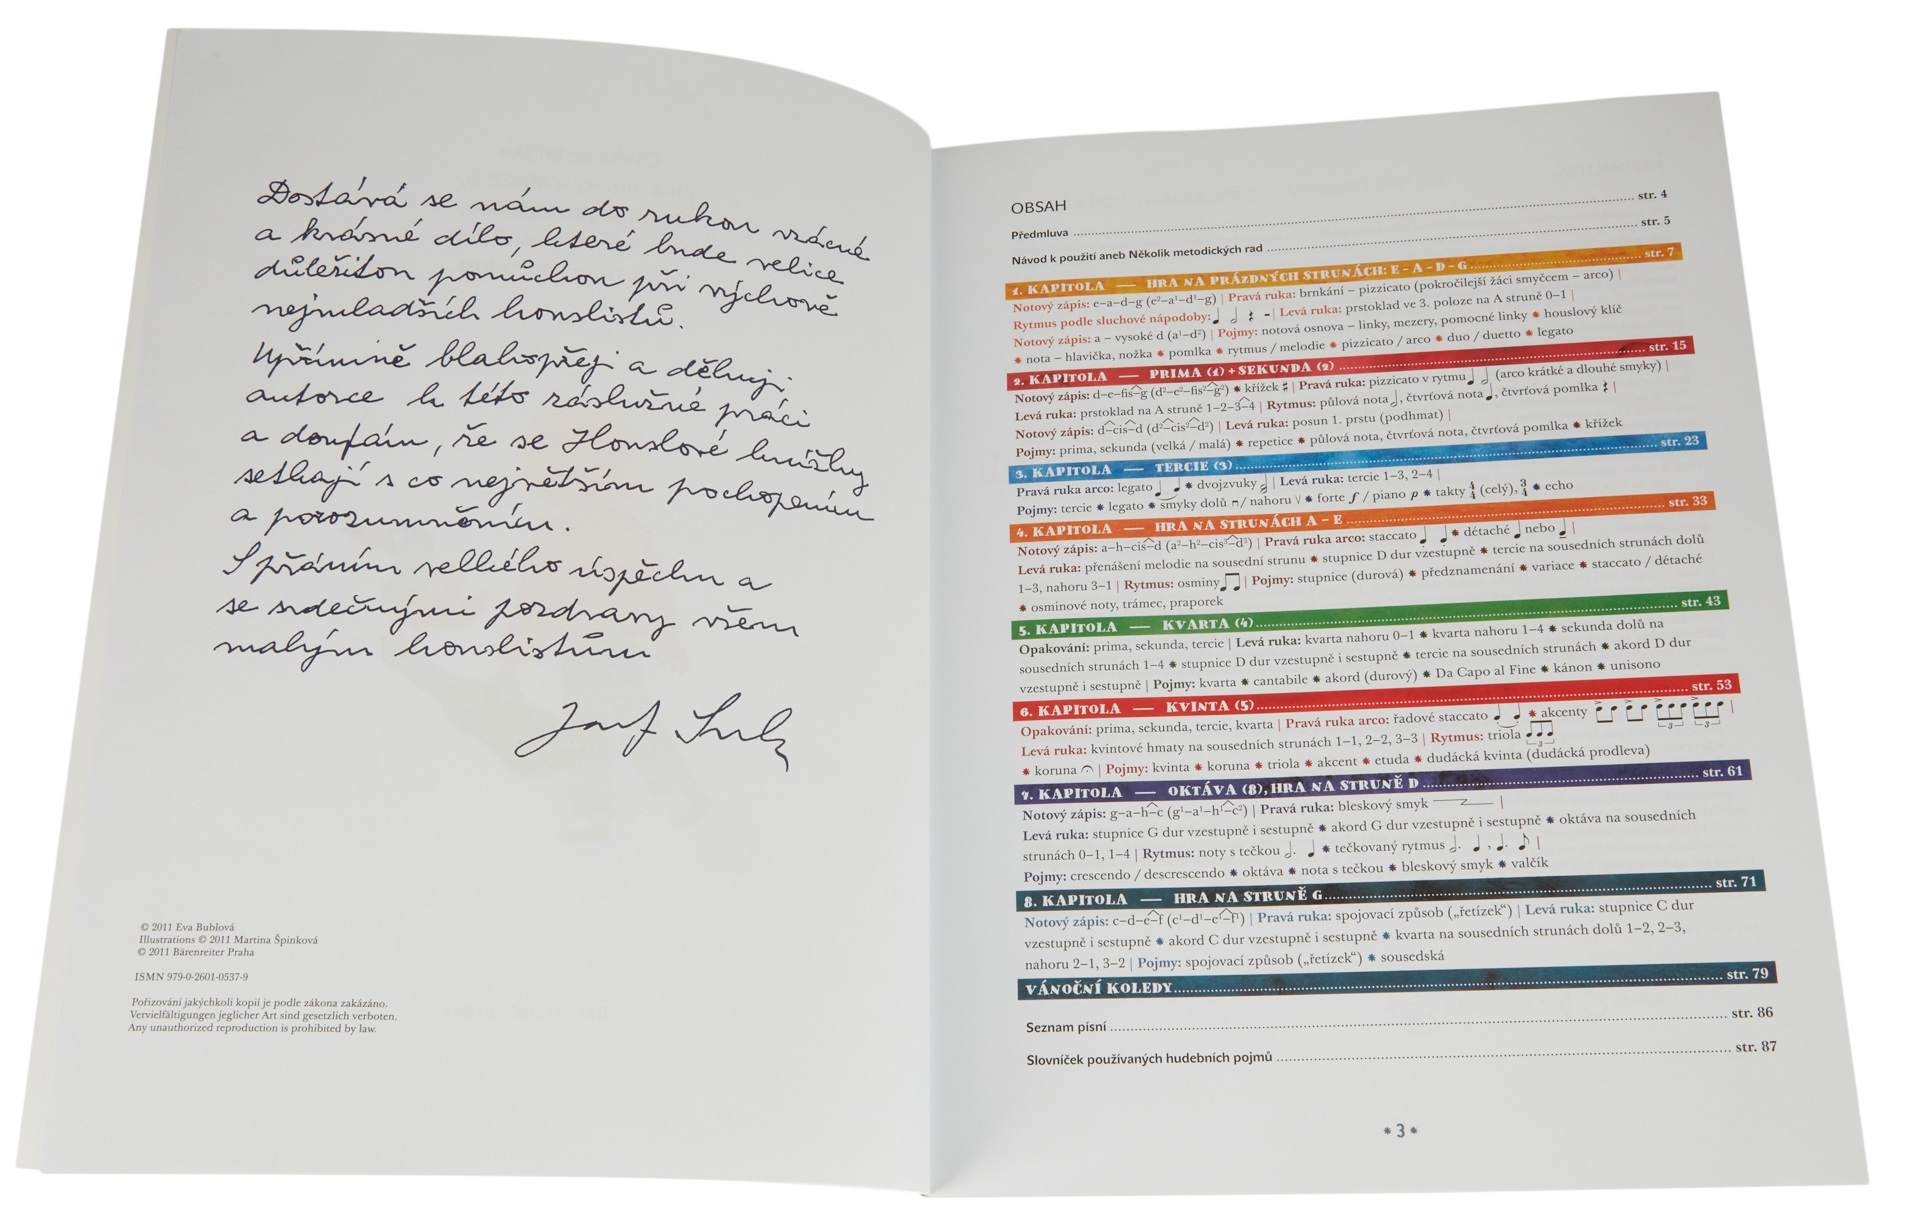 Dostává se nám do rukou vzácné
a krásné dílo, které bude velice
důležitou pomůckou při výchově
nejmladších houslistů.
Upřímně blahopřeji a děkuji
autorce k této záslužné práci
a doufám, že se Houslové knížky
setkají s co největším pochopením
a porozuměním.
S přáním velkého úspěchu a
se srdečnými pozdravy všem
malým houslistům
Josef Suk
© 2011 Eva Bublová
Illustrations © 2011 Martina Špinková
© 2011 Bärenreiter Praha
ISMN 979-0-2601-0537-9
Pořizování jakýchkoli kopií je podle zákona zakázáno.
Vervielfältigungen jeglicher Art sind gesetzlich verboten.
Any unauthorized reproduction is prohibited by law.
OBSAH
Předmluva ... str. 4
Návod k použití aneb Několik metodických rad ... str. 5
1. KAPITOLA — HRA NA PRÁZDNÝCH STRUNÁCH: E - A - D - G ... str. 7
Notový zápis: e–a–d–g (e²–a¹–d¹–g) | Pravá ruka: brnkání – pizzicato (pokročilejší žáci smyčcem – arco) |
Rytmus podle sluchové nápodoby: | Levá ruka: prstoklad ve 3. poloze na A struně 0–1 |
Notový zápis: a – vysoké d (a¹–d²) | Pojmy: notová osnova – linky, mezery, pomocné linky * houslový klíč
* nota – hlavička, nožka * pomlka * rytmus / melodie * pizzicato / arco * duo / duetto * legato
2. KAPITOLA — PRIMA (1) + SEKUNDA (2) ... str. 15
Notový zápis: d–e–fis–g (d²–e²–fis²–g²) * křížek ♯ | Pravá ruka: pizzicato v rytmu (arco krátké a dlouhé smyky) |
Levá ruka: prstoklad na A struně 1–2–3–4 | Rytmus: půlová nota , čtvrťová nota , čtvrťová pomlka |
Notový zápis: d–cis–d (d²–cis²–d²) | Levá ruka: posun 1. prstu (podhmat) |
Pojmy: prima, sekunda (velká / malá) * repetice * půlová nota, čtvrťová nota, čtvrťová pomlka * křížek
3. KAPITOLA — TERCIE (3) ... str. 23
Pravá ruka arco: legato * dvojzvuky | Levá ruka: tercie 1–3, 2–4 |
Pojmy: tercie * legato * smyky dolů / nahoru * forte f / piano p * takty 4/4 (celý), 3/4 * echo
4. KAPITOLA — HRA NA STRUNÁCH A – E ... str. 33
Notový zápis: a–h–cis–d (a²–h²–cis³–d³) | Pravá ruka arco: staccato * détaché nebo |
Levá ruka: přenášení melodie na sousední strunu * stupnice D dur vzestupně * tercie na sousedních strunách dolů
1–3, nahoru 3–1 | Rytmus: osminy | Pojmy: stupnice (durová) * předznamenání * variace * staccato / détaché
* osminové noty, trámec, praporek
5. KAPITOLA — KVARTA (4) ... str. 43
Opakování: prima, sekunda, tercie | Levá ruka: kvarta nahoru 0–1 * kvarta nahoru 1–4 * sekunda dolů na
sousedních strunách 1–4 * stupnice D dur vzestupně i sestupně * tercie na sousedních strunách * akord D dur
vzestupně i sestupně | Pojmy: kvarta * cantabile * akord (durový) * Da Capo al Fine * kánon * unisono
6. KAPITOLA — KVINTA (5) ... str. 53
Opakování: prima, sekunda, tercie, kvarta | Pravá ruka arco: řadové staccato * akcenty |
Levá ruka: kvintové hmaty na sousedních strunách 1–1, 2–2, 3–3 | Rytmus: triola
* koruna | Pojmy: kvinta * koruna * triola * akcent * etuda * dudácká kvinta (dudácká prodleva)
7. KAPITOLA — OKTÁVA (8), HRA NA STRUNĚ D ... str. 61
Notový zápis: g–a–h–c (g¹–a¹–h¹–c²) | Pravá ruka: bleskový smyk |
Levá ruka: stupnice G dur vzestupně i sestupně * akord G dur vzestupně i sestupně * oktáva na sousedních
strunách 0–1, 1–4 | Rytmus: noty s tečkou * tečkovaný rytmus |
Pojmy: crescendo / descrescendo * oktáva * nota s tečkou * bleskový smyk * valčík
8. KAPITOLA — HRA NA STRUNĚ G ... str. 71
Notový zápis: c–d–e–f (c¹–d¹–e¹–f¹) | Pravá ruka: spojovací způsob („řetízek“) | Levá ruka: stupnice C dur
vzestupně i sestupně * akord C dur vzestupně i sestupně * kvarta na sousedních strunách dolů 1–2, 2–3,
nahoru 2–1, 3–2 | Pojmy: spojovací způsob („řetízek“) * sousedská
VÁNOČNÍ KOLEDY ... str. 79
Seznam písní ... str. 86
Slovníček používaných hudebních pojmů ... str. 87
* 3 *